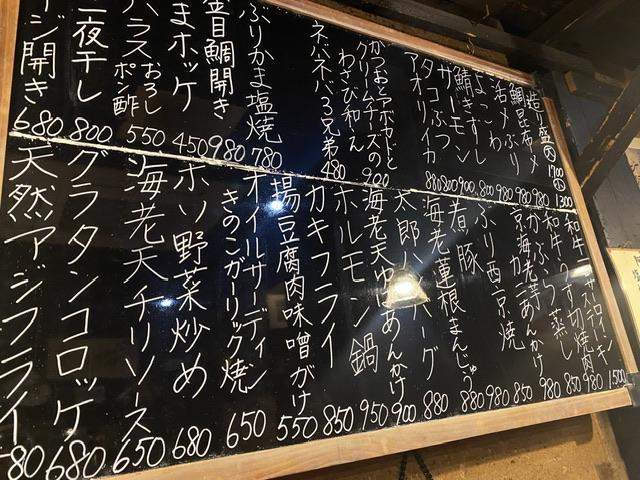 造り盛 大 1700 小 1300
鯛昆布〆 980
活〆ぶり 980
よこわ 980
〆さば
鯖きずし 900
サーモン 800
タコぶつ 880
アオリイカ
かつおとアボカドと
クリームチーズの
わさび和え 920
ネバネバ3兄弟 480
ぶりかま塩焼 780
金目鯛開き 980
まホッケ 450
ハラス おろしポン酢 550
一夜干し 800
アジ開き 680
和牛 サーロインステーキ 1,500
和牛うす切焼肉 980
かぶら蒸し 850
京海老芋あんかけ 980
カニ
ぶり西京焼 850
煮豚 980
海老蓮根まんじゅう 880
太郎ハンバーグ 880
海老天ゆばあんかけ 900
ホルモン鍋 950
カキフライ 850
揚豆腐肉味噌がけ 550
オイルサーディン
きのこガーリック焼 650
ホソ野菜炒め 680
海老天チリソース 650
グラタンコロッケ 680
天然アジフライ 80